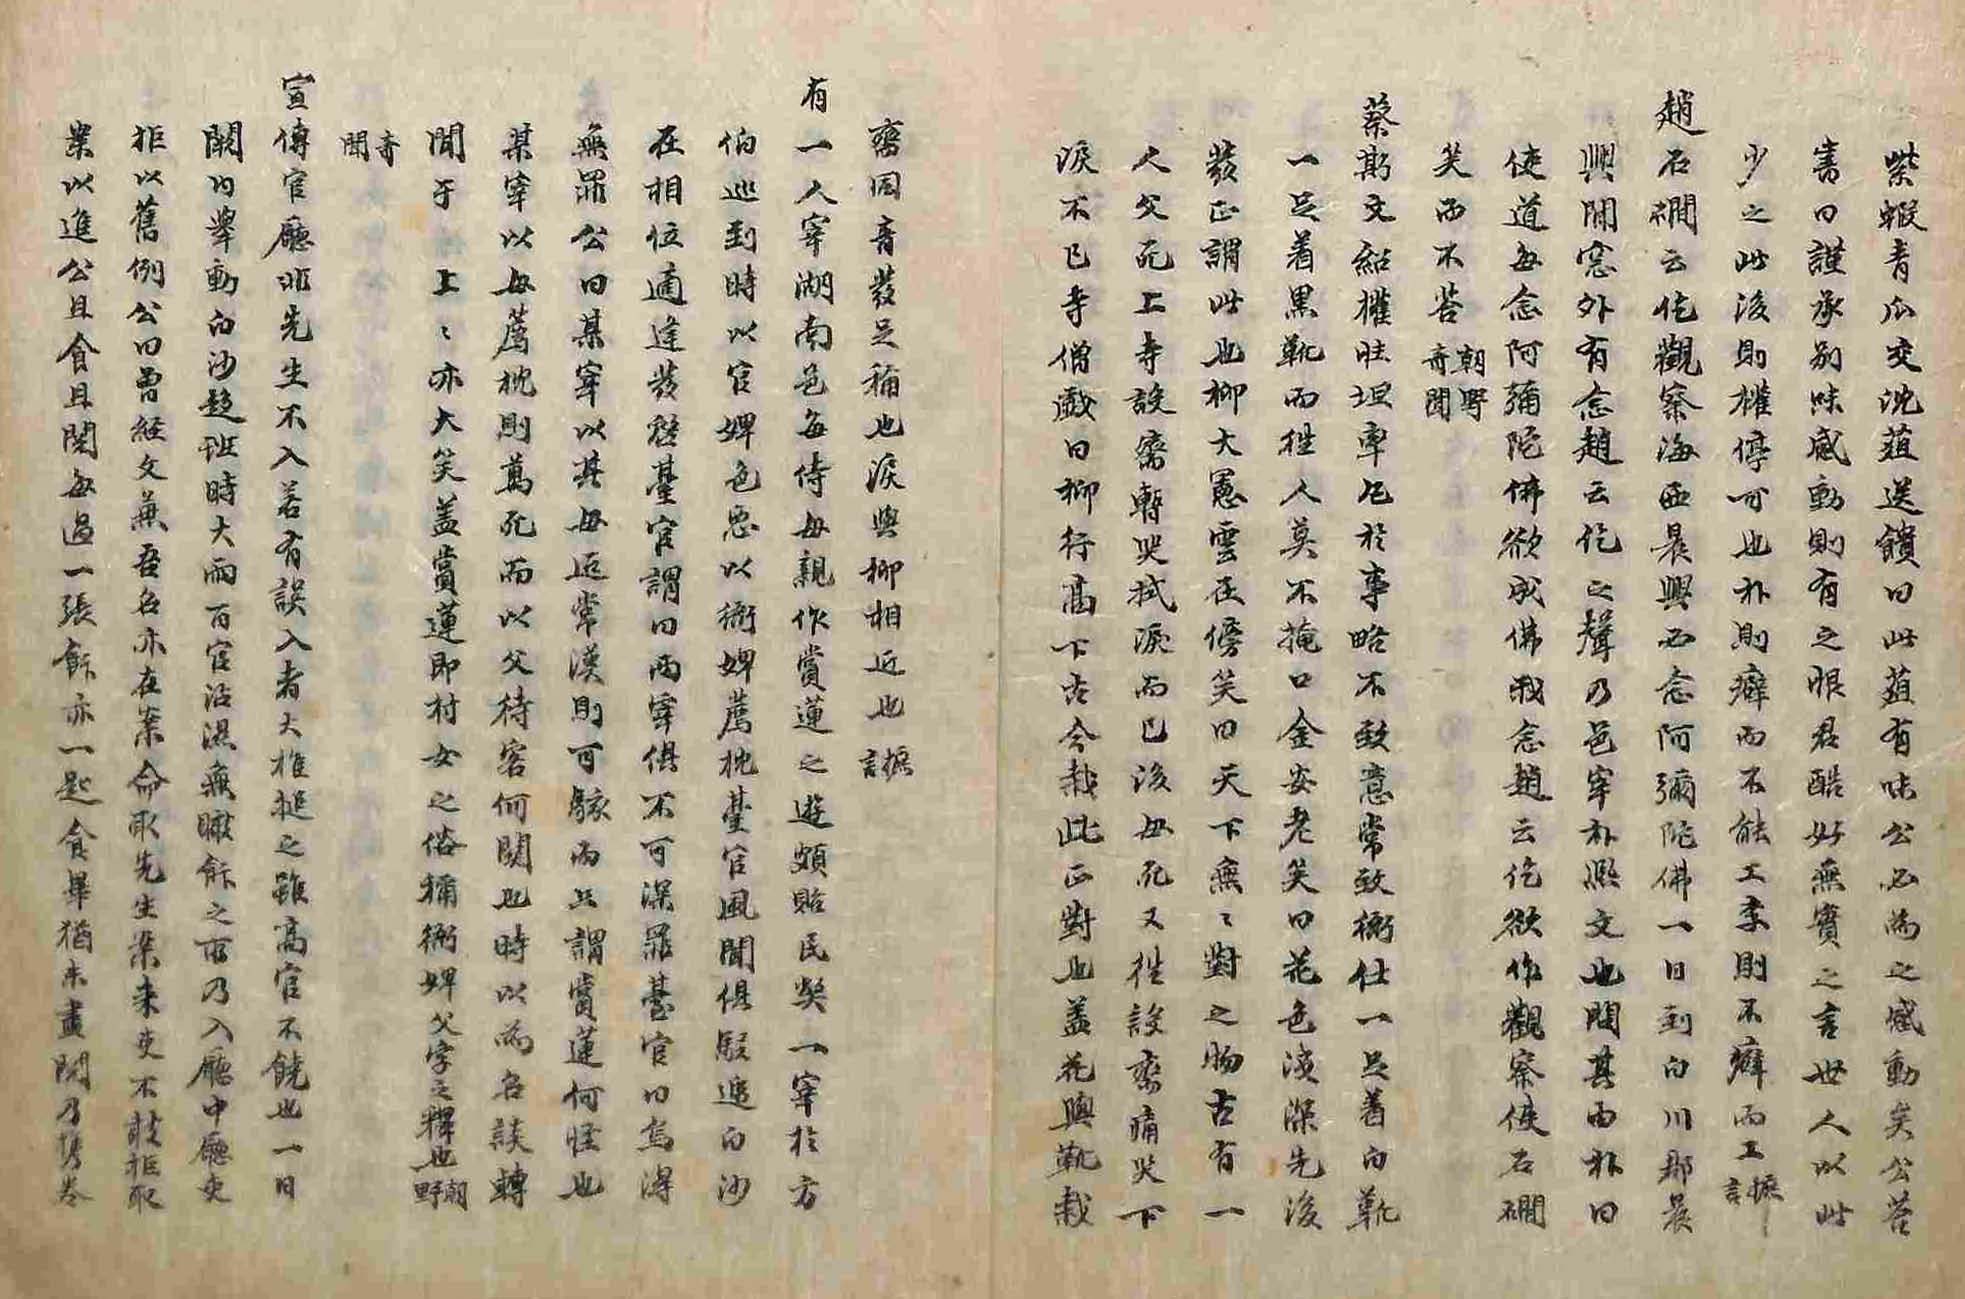 紫蝦青瓜交沈葅送饋曰此葅有味公必爲之感動矣公答
書曰謹承別味感動則有之恨君酷好無實之言世人以此
少之此後則權停可也朴則癖而不能工李則不癖而工 摭言
趙石磵云仡觀察海西晨興必念阿彌陀佛一日到白川郡晨
興聞窓外有念趙云仡之聲乃邑宰朴熙文也問其由朴曰
使道每念阿彌陀佛欲成佛我念趙云仡欲作觀察使石磵
笑而不答 朝野奇聞
蔡斯文紹權性坦率凡於事略不致意常致衙仕一足着白靴
一足着黑靴而徃人莫不掩口金安老笑曰花色淺深先後
發正謂此也柳大憲雲在傍笑曰天下無〻對之物古有一
人父死上寺設齋暫哭拭淚而已後母死又徃設齋痛哭下
淚不已寺僧戱曰柳行高下古今栽此正對也盖花與靴栽
齋同音發足稱也淚與柳相近也 摭言
有一人宰湖南邑每侍母親作賞蓮之遊頗貽民弊一宰於方
伯巡到時以官婢色惡以衙婢薦枕臺官風聞俱駁進白沙
在相位適逢發啓臺官謂曰兩宰俱不可深罪臺官曰烏得
無罪公曰某宰以其母近常漢則可駭而只謂賞蓮何怪也
某宰以母薦枕則萬死而以父待客何關也時以爲名談轉
聞于 上〻亦大笑盖賞蓮即村女之俗稱衙婢父字之釋也 朝野
奇聞
宣傳官廳非先生不入若有誤入者大椎搥之雖高官不饒也一日
闕內擧動白沙趍班時大雨百官沾濕無瞰飭之所乃入廳中廳吏
拒以舊例公曰曾經文兼吾名亦在案命取先生案來吏不敢拒取
案以進公且食且閱每過一張餅亦一匙食畢猶未盡閱乃携卷